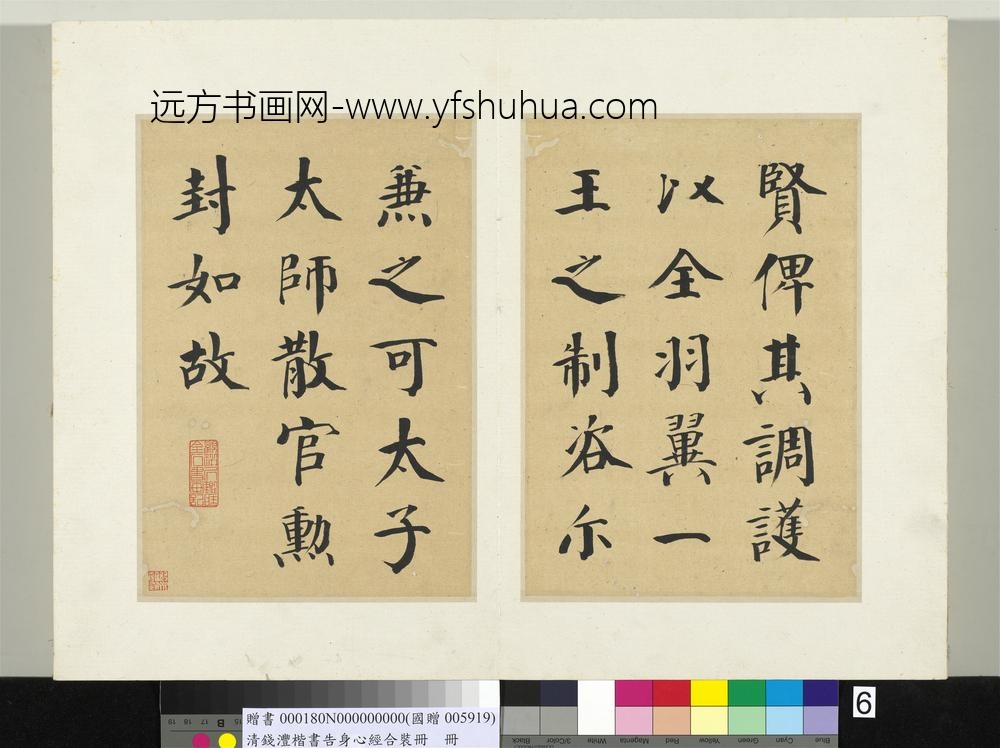 远方书画网-www.yfshuhua.com
賢俾其調護
以全羽翼一
王之制咨尓
兼之可太子
太師散官勲
封如故
6
贈書 000180N000000000(國贈 005919)
清錢澧楷書告身心經合裝冊 冊
Black
3/Color
White
Magenta
Red
Yellow
Green
Cyan
Blue
19 18 17 B 15